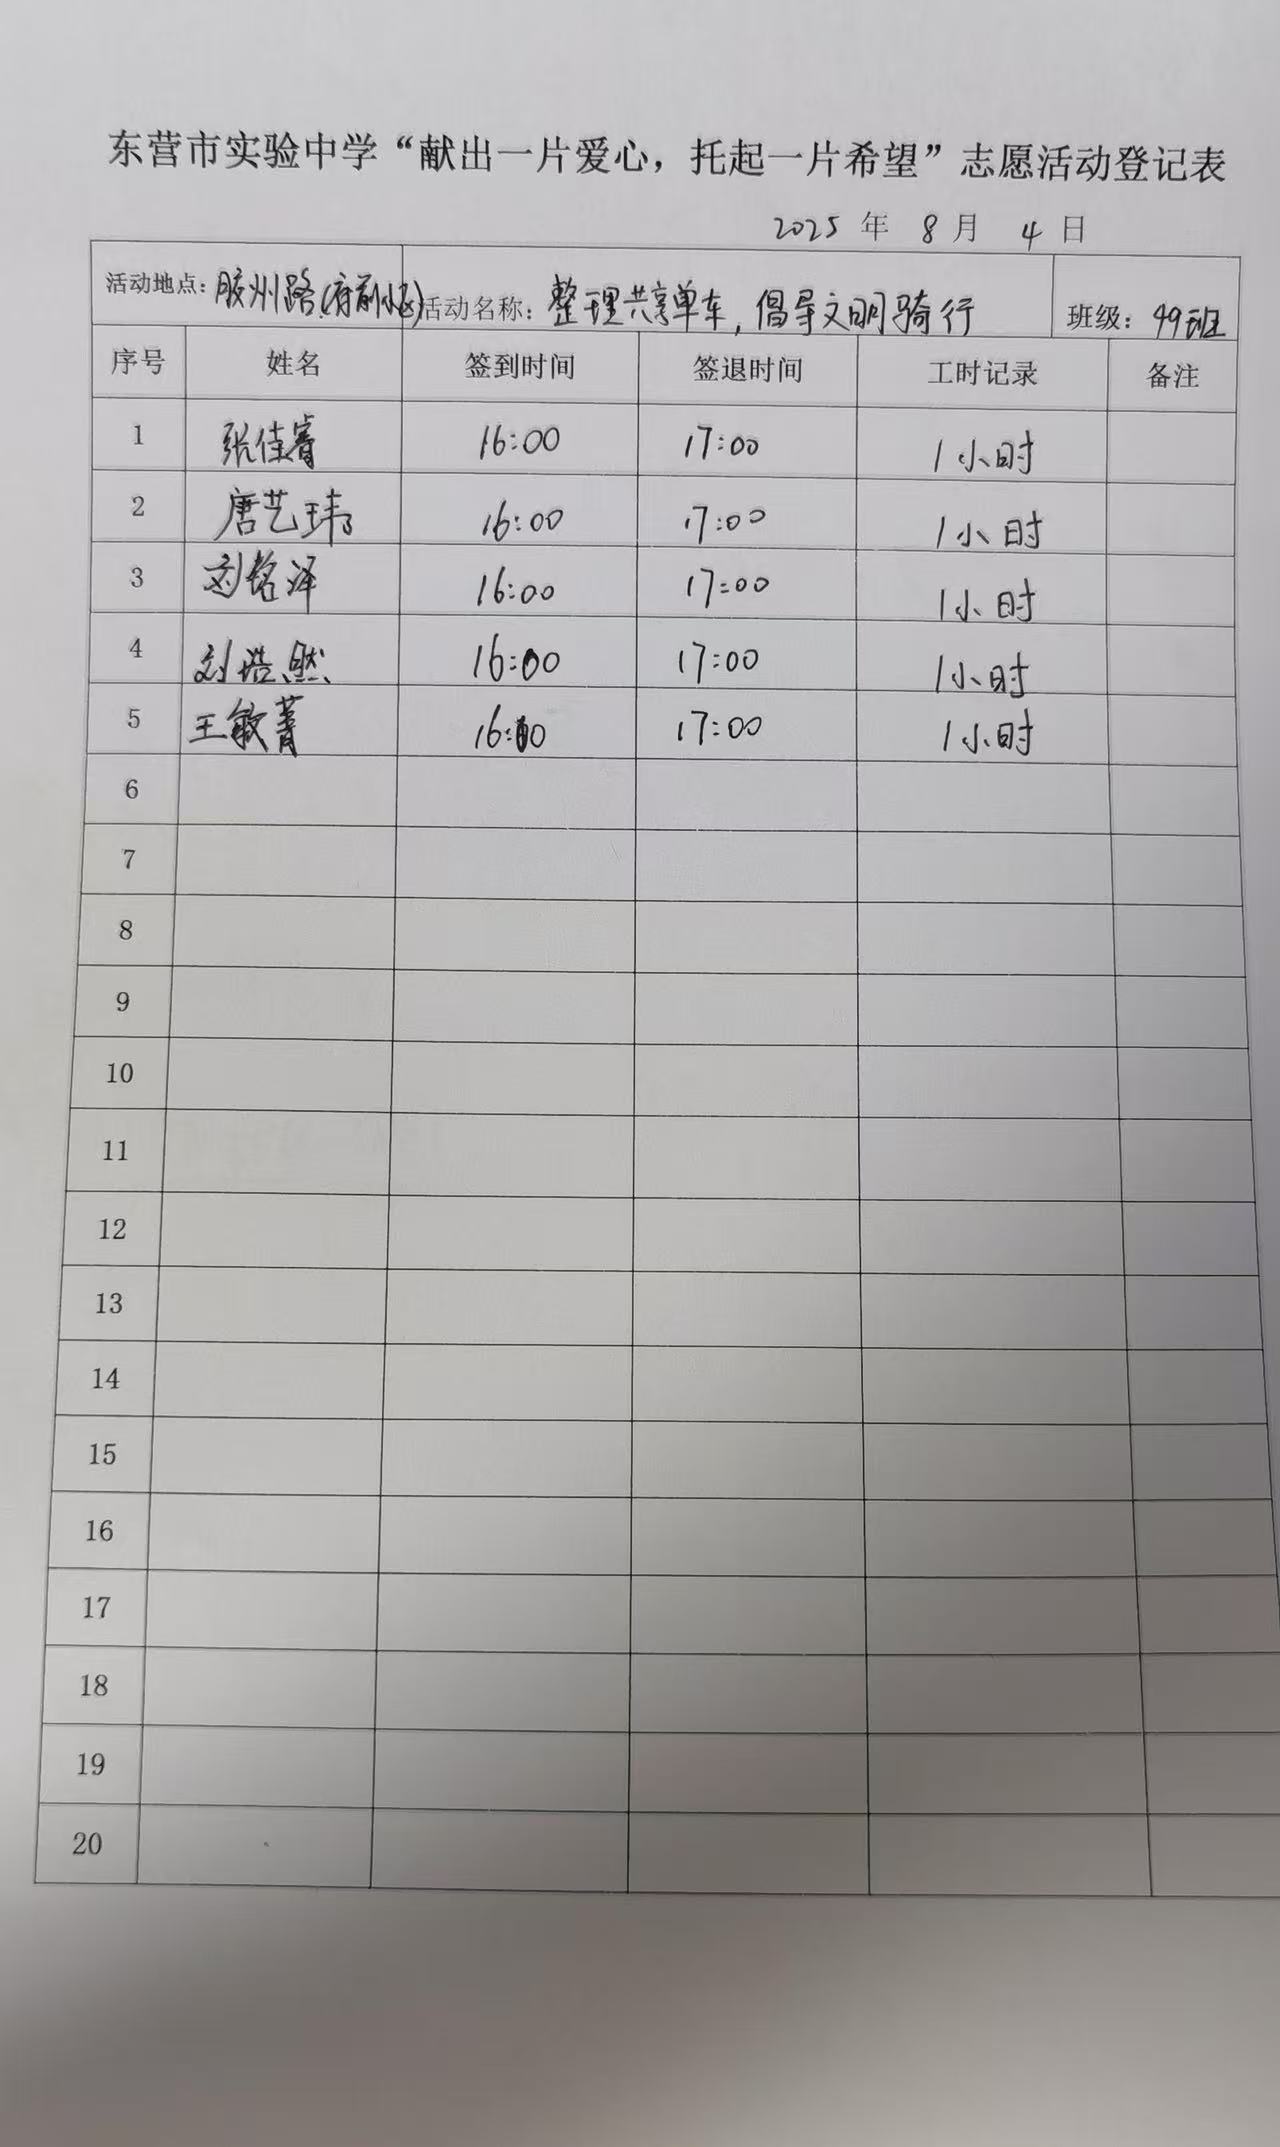 东营市实验中学“献出一片爱心，托起一片希望”志愿活动登记表
2025 年 8 月 4 日
活动地点：胶州路(府前小区) 活动名称：整理共享单车，倡导文明骑行 班级：49班
序号 姓名 签到时间 签退时间 工时记录 备注
1 张佳睿 16:00 17:00 1小时
2 唐艺玮 16:00 17:00 1小时
3 刘铭泽 16:00 17:00 1小时
4 刘浩然 16:00 17:00 1小时
5 王敏菁 16:00 17:00 1小时
6
7
8
9
10
11
12
13
14
15
16
17
18
19
20